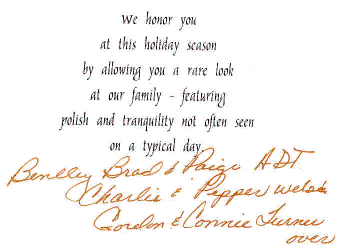 We honor you
at this holiday season
by allowing you a rare look
at our family - featuring
polish and tranquility not often seen
on a typical day.
Bentley Brad & Paige ADT
Charlie & Pepper Welsh
Gordon & Connie Turner
over